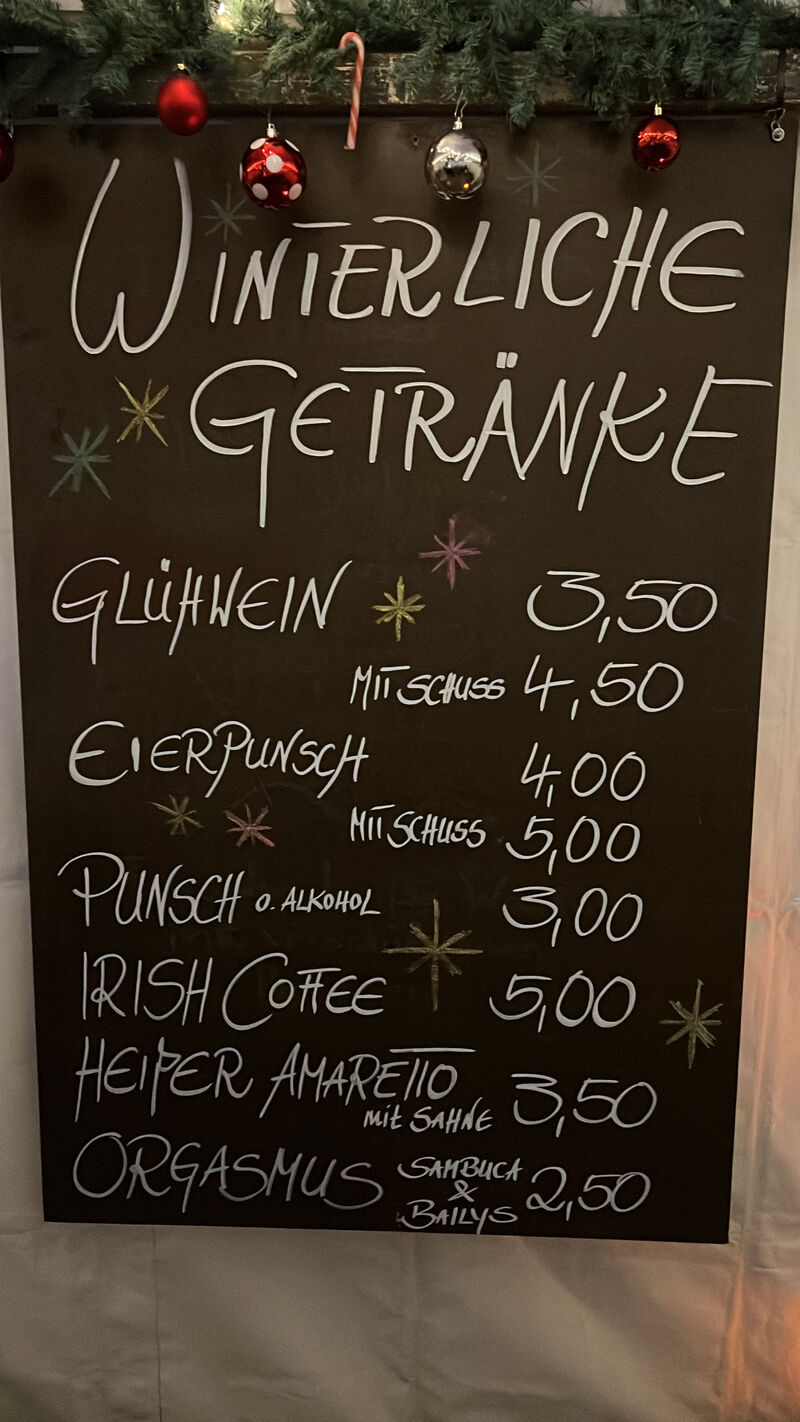 WINTERLICHE
GETRÄNKE
GLÜHWEIN 3,50
MIT SCHUSS 4,50
EIERPUNSCH 4,00
MIT SCHUSS 5,00
PUNSCH O. ALKOHOL 3,00
IRISH COFFEE 5,00
HEIßER AMARETTO
mit SAHNE 3,50
ORGASMUS SAMBUCA
& 2,50
BAILYS